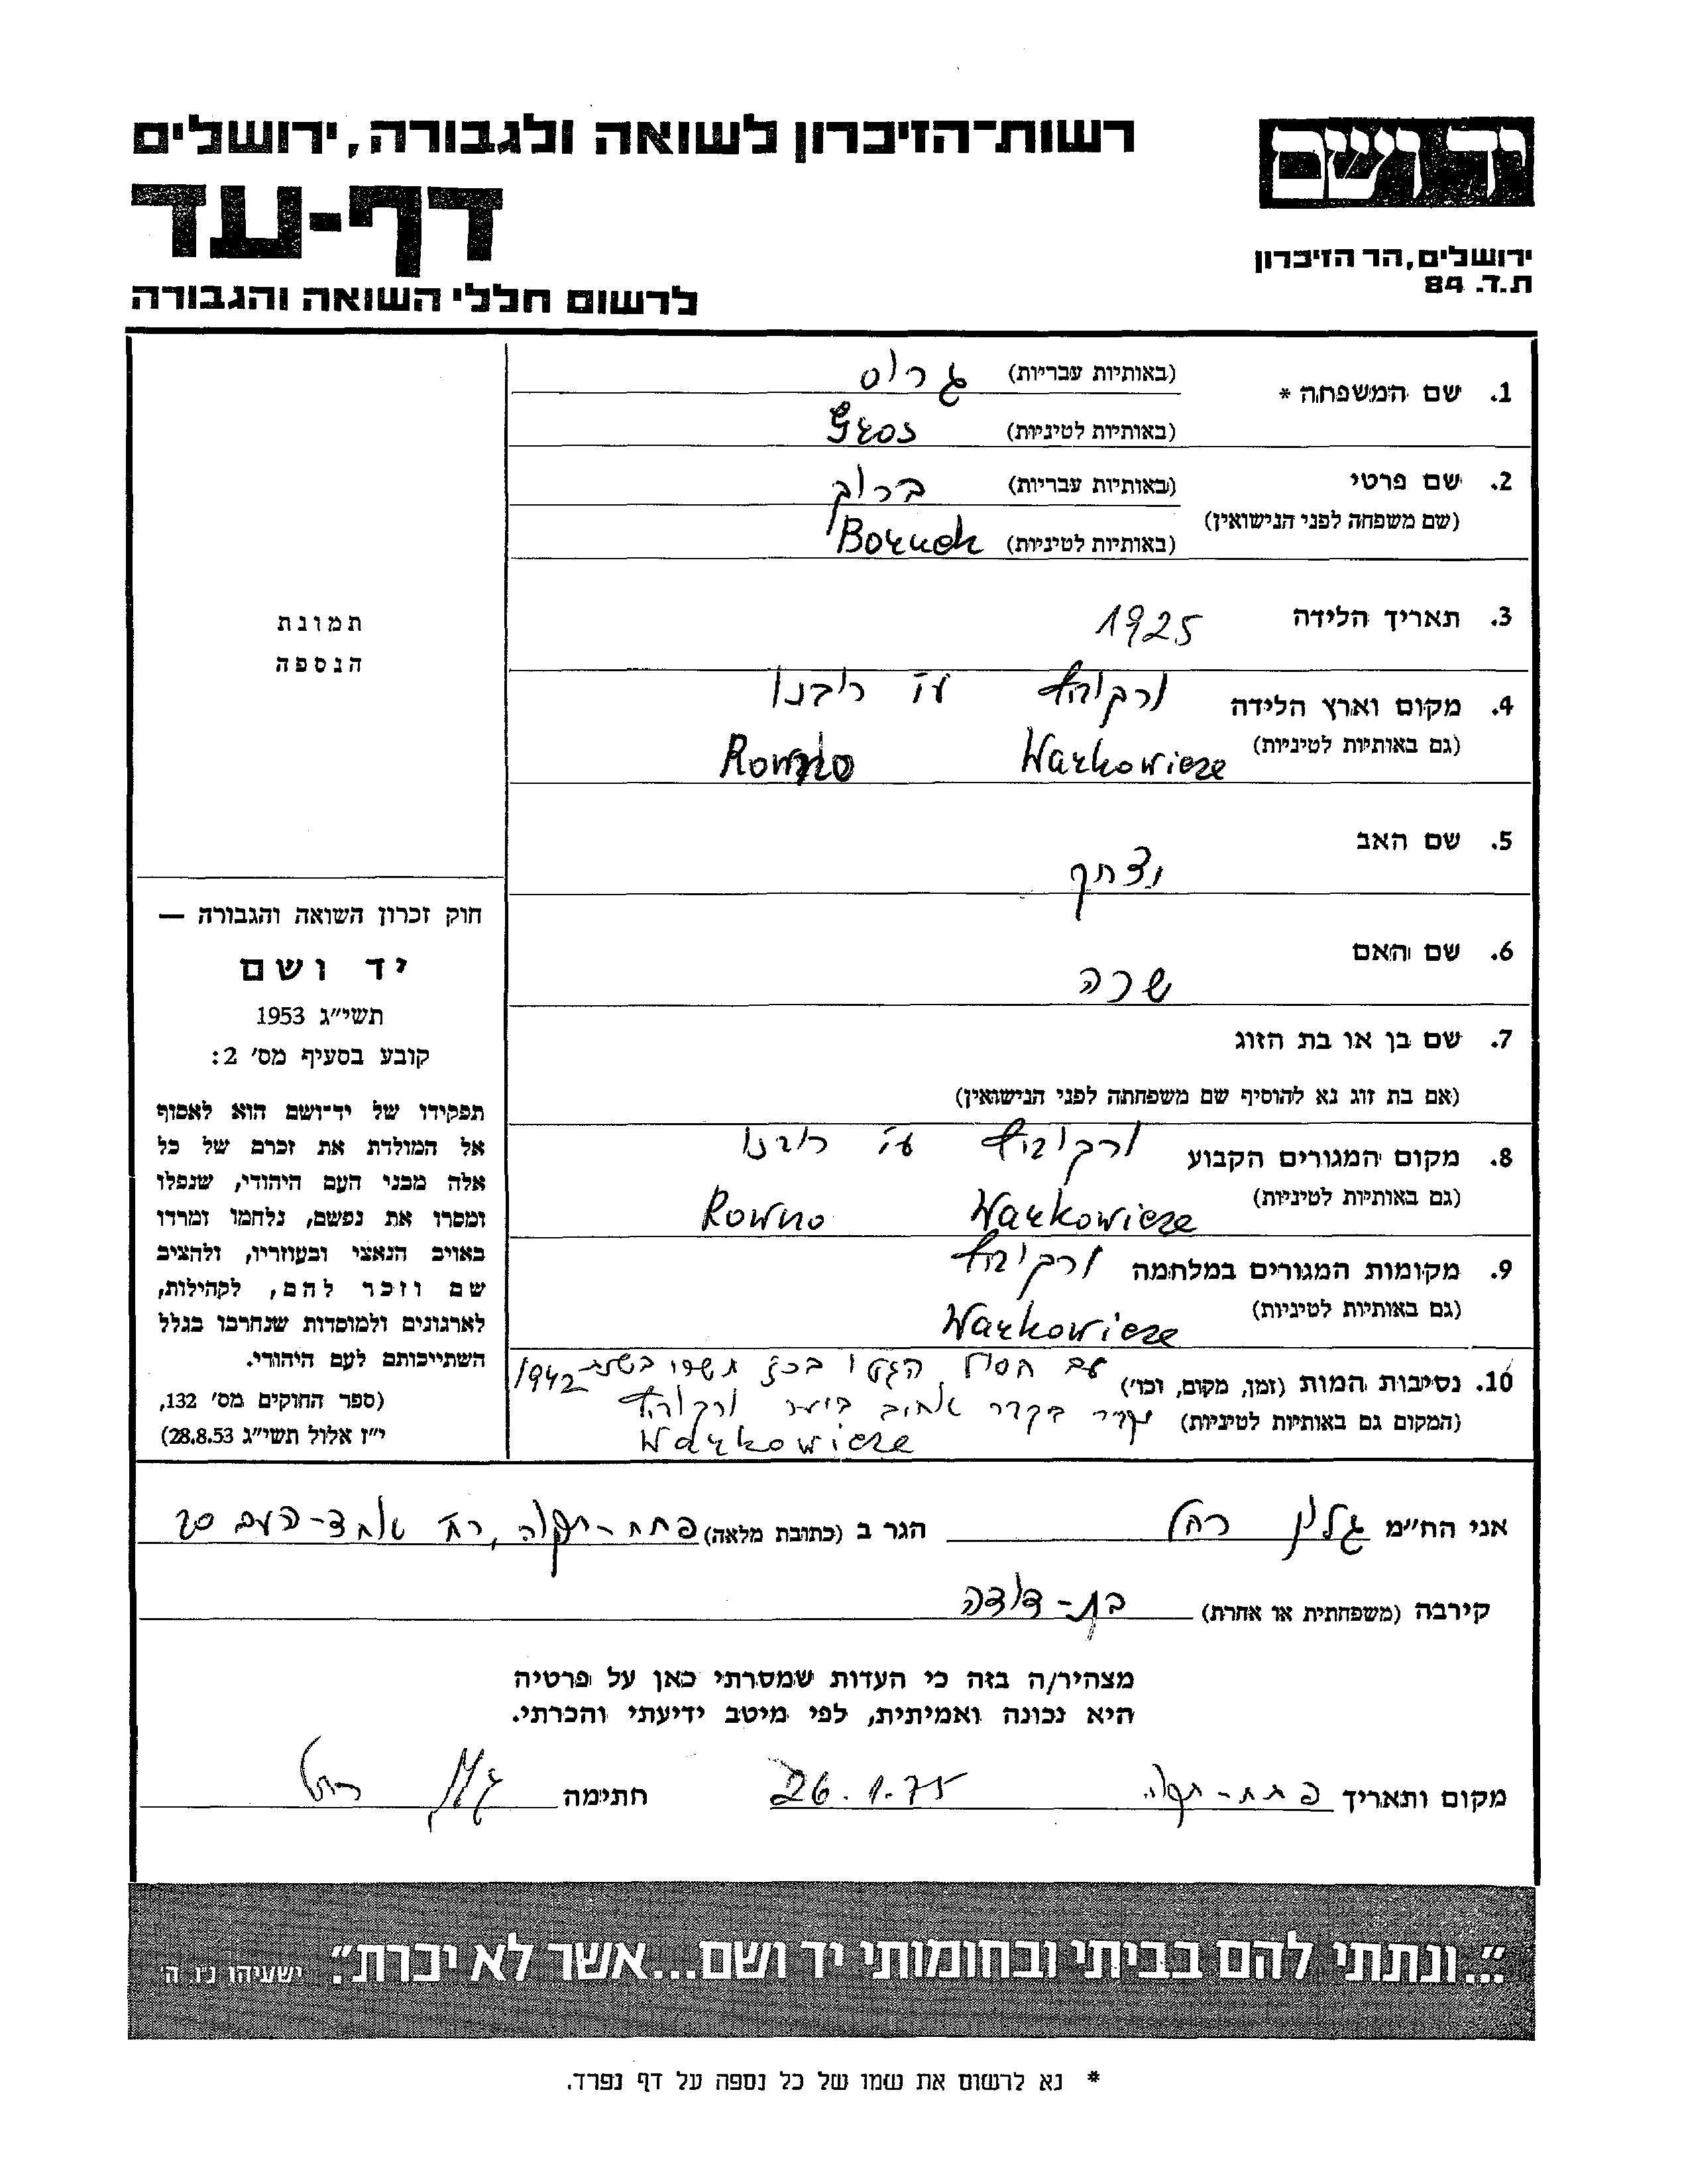 רשות-הזיכרון לשואה ולגבורה, ירושלים
דף-עד
לרשום חללי השואה והגבורה
יד ושם
ירושלים, הר הזיכרון
ת.ד. 84
1. שם המשפחה *
(באותיות עבריות) גרוס
(באותיות לטיניות) Gros
2. שם פרטי
(שם משפחה לפני הנישואין)
(באותיות עבריות) ברוך
(באותיות לטיניות) Boruch
3. תאריך הלידה 1925
4. מקום וארץ הלידה ורקוביץ ע"י רובנו
(גם באותיות לטיניות) Warkowicze Rowno
5. שם האב יצחק
6. שם האם שרה
7. שם בן או בת הזוג
(אם בת זוג נא להוסיף שם משפחתה לפני הנישואין)
8. מקום המגורים הקבוע ורקוביץ ע"י רובנו
(גם באותיות לטיניות) Warkowicze Rowno
9. מקומות המגורים במלחמה ורקוביץ
(גם באותיות לטיניות) Warkowicze
10. נסיבות המות (זמן, מקום, וכו') עם חסול הגטו בכ"ג תשרי בשנת 1942
(המקום גם באותיות לטיניות) נקבר בקבר אחים ביער ורקוביץ
Warkowicze
תמונת
הנספה
חוק זכרון השואה והגבורה —
יד ושם
תשי"ג 1953
קובע בסעיף מס' 2:
תפקידו של יד-ושם הוא לאסוף
אל המולדת את זכרם של כל
אלה מבני העם היהודי, שנפלו
ומסרו את נפשם, נלחמו ומרדו
באויב הנאצי ובעוזריו, ולהציב
שם וזכר להם, לקהילות,
לארגונים ולמוסדות שנחרבו בגלל
השתייכותם לעם היהודי.
(ספר החוקים מס' 132,
י"ז אלול תשי"ג 28.8.53)
אני הח"מ גלין רחל הגר ב (כתובת מלאה) פתח-תקוה, רח' אחד-העם
קירבה (משפחתית או אחרת) בת-דודה
מצהיר/ה בזה כי העדות שמסרתי כאן על פרטיה
היא נכונה ואמיתית, לפי מיטב ידיעתי והכרתי.
מקום ותאריך פתח-תקוה 26.1.75 חתימה
"...ונתתי להם בביתי ובחומותי יד ושם...אשר לא יכרת". ישעיהו נ"ו ה'
* נא לרשום את שמו של כל נספה על דף נפרד.